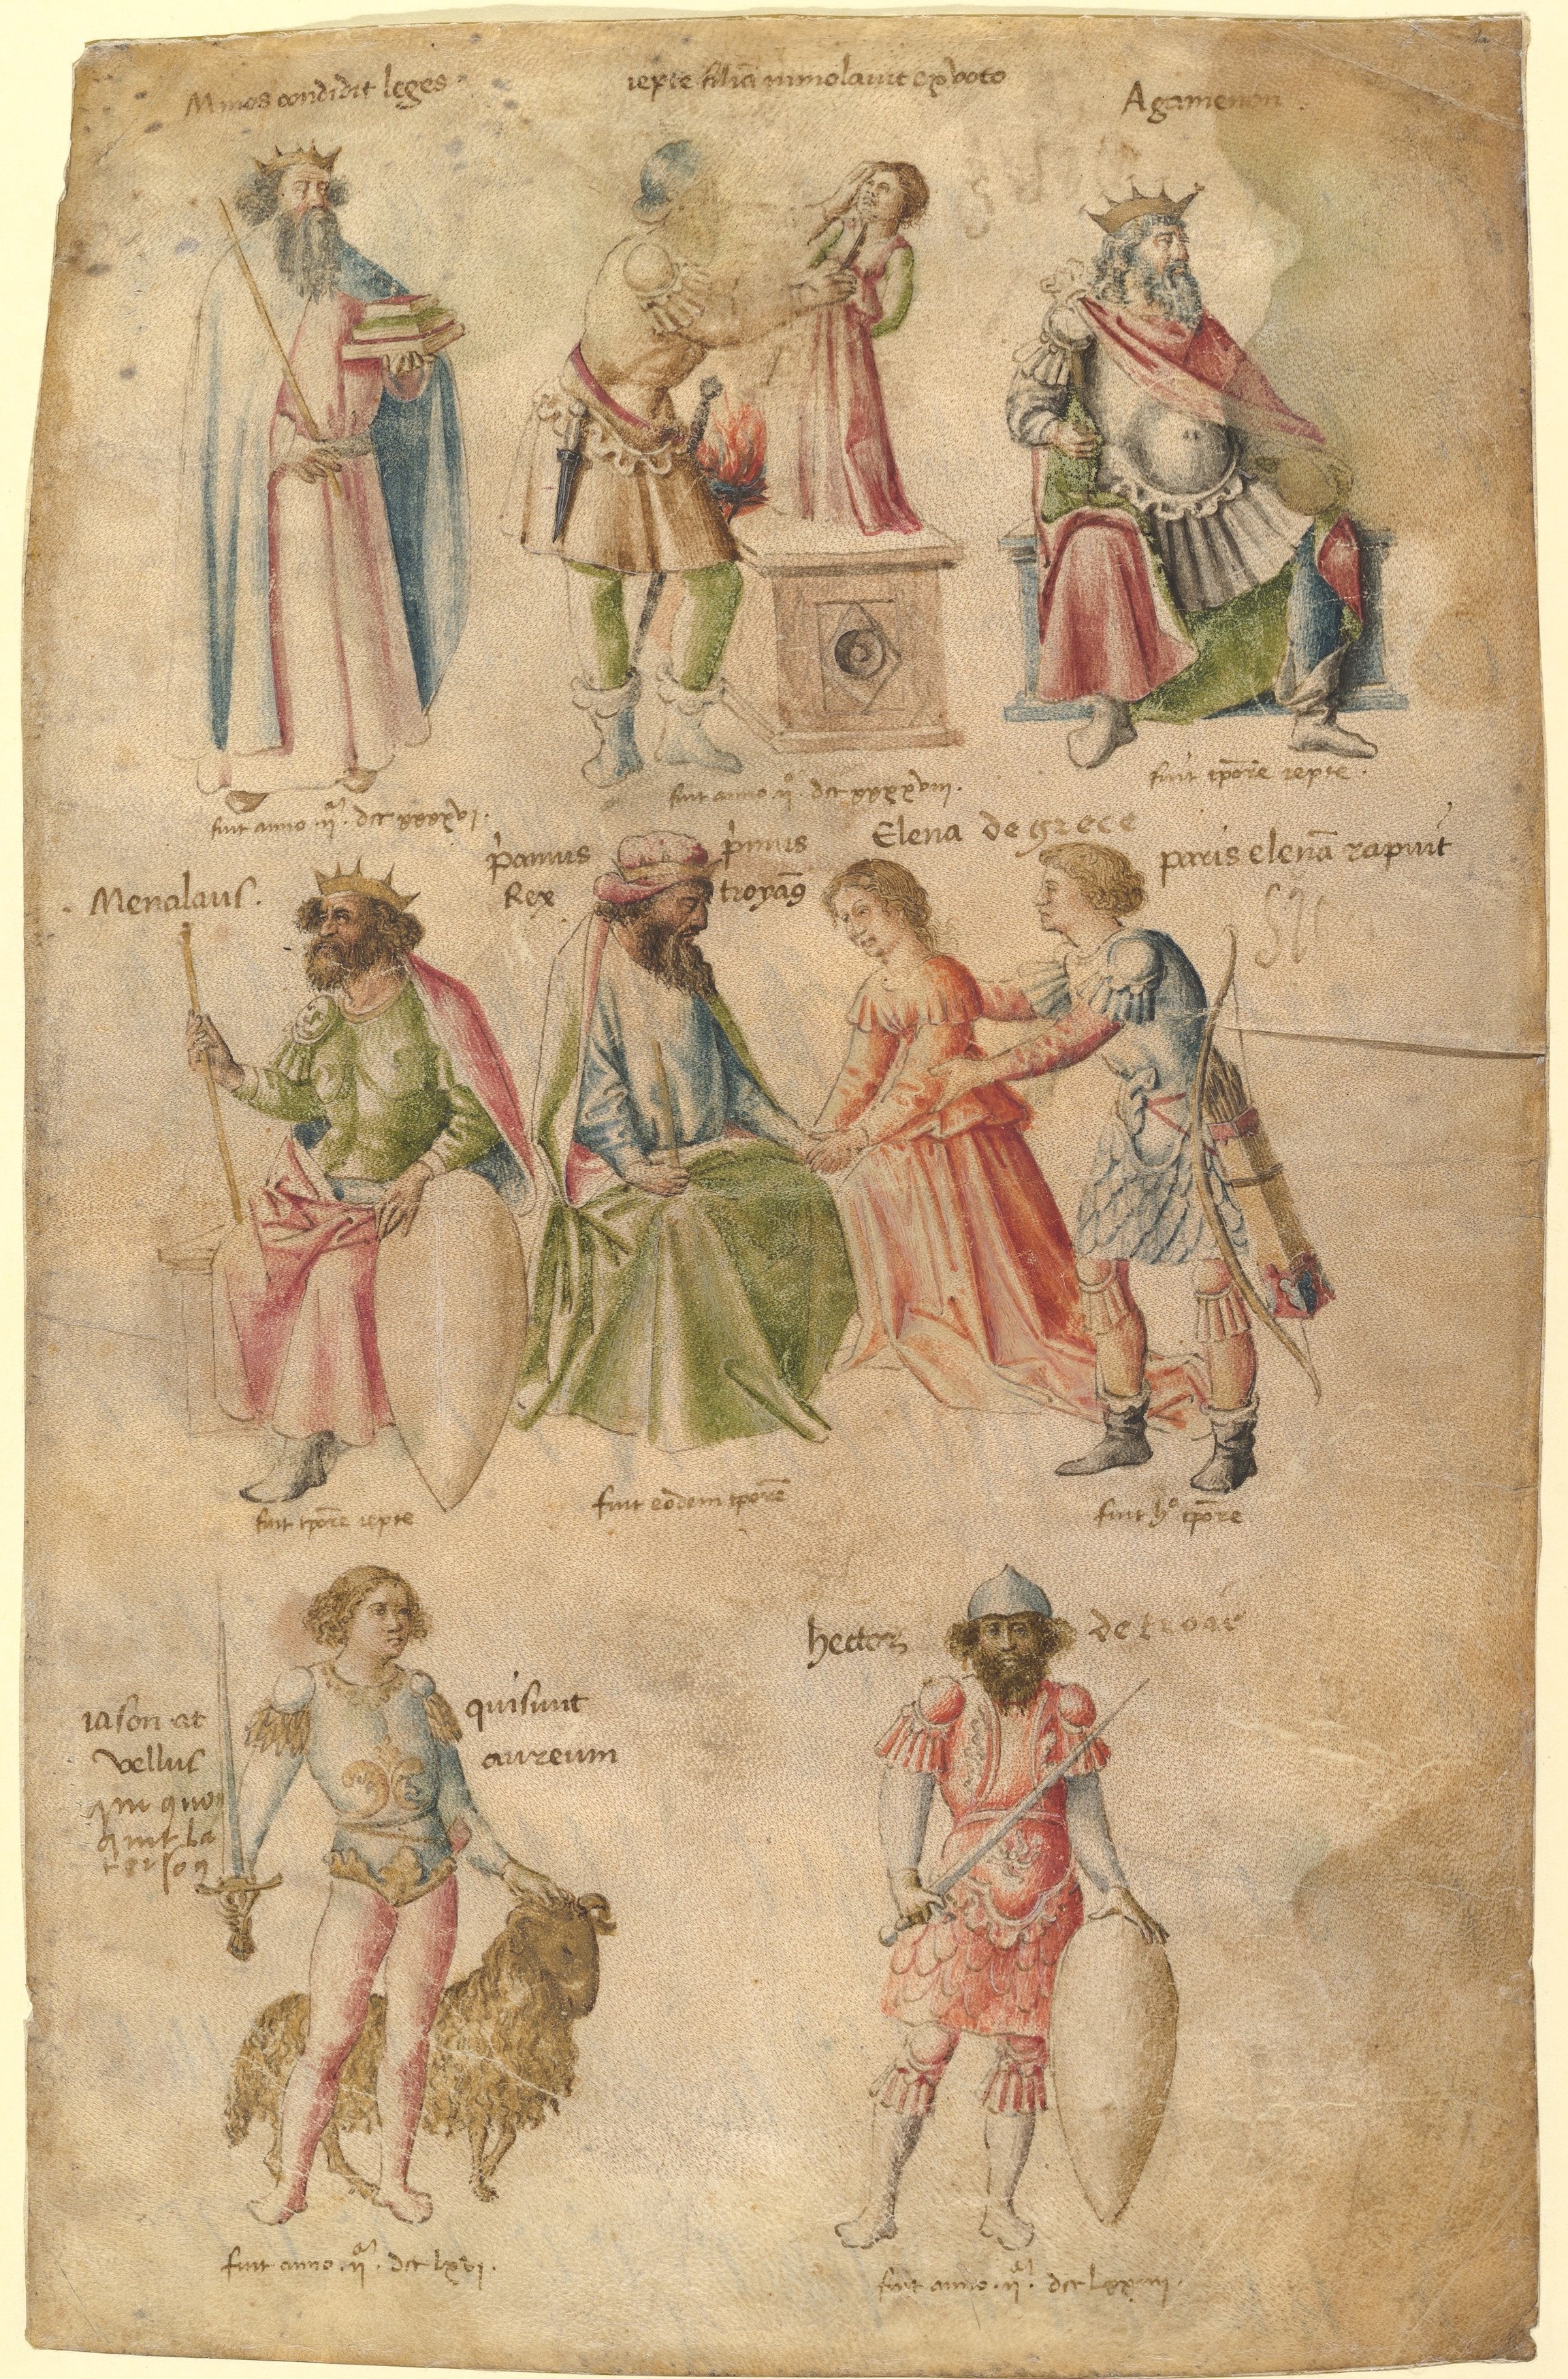 Minos condidit leges
iepte filia immolavit ex voto
Agamenon
fuit anno .ii. dcc xxxxvi.
fuit anno .ii. dcc xxxxviii.
fuit tpore iepte.
Menalaus.
priamus
Rex
primus
troyãg
Elena de grece
paris elenã rapuit
fuit tpore iepte
fuit eodem tpore
fuit h° tpore
iason at
vellus
quisivit
aureum
hector de troie
fuit anno .ii. dcc lxvi.
fuit anno .ii. dcc